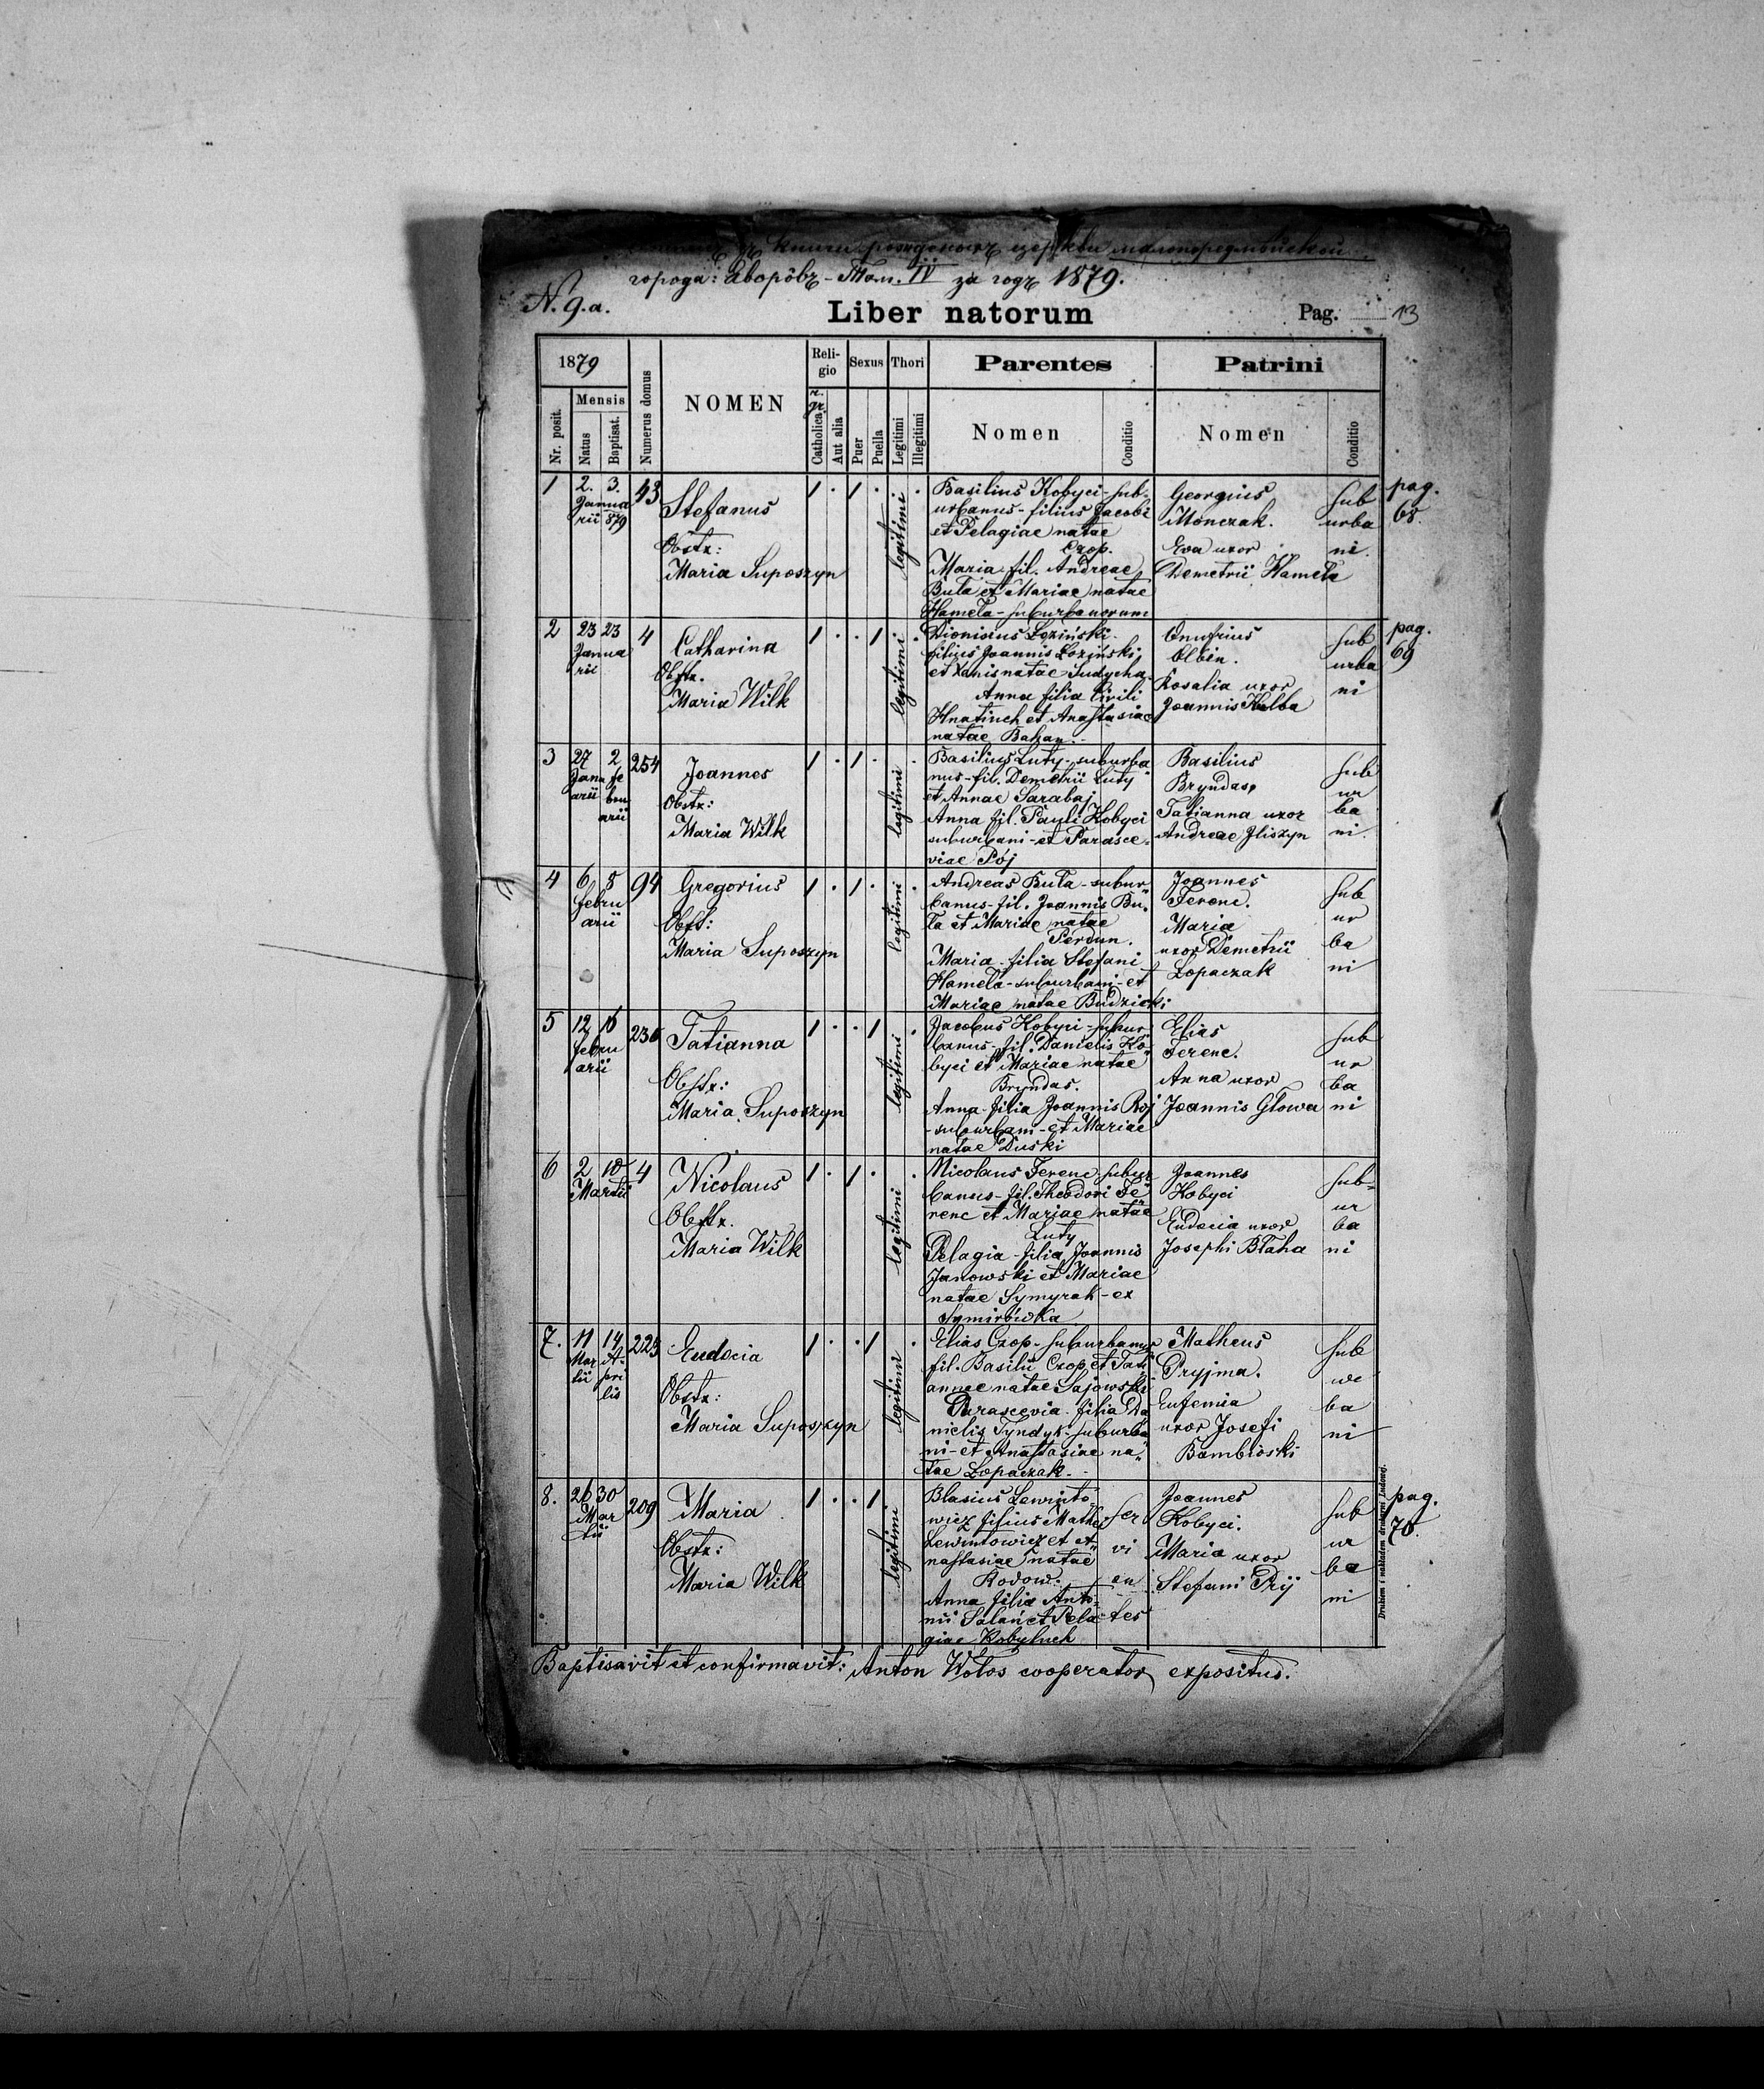 книги
города: Яворôвъ - Том. IV за годъ 1879.
N. 9.a.
Liber natorum
Pag. 13
1879
Nr. posit.
Mensis
Natus
Baptisat.
Numerus domus
NOMEN
Religio
r. gr.
Catholica
Aut alia
Sexus
Puer
Puella
Thori
Legitimi
Illegitimi
Parentes
Nomen
Conditio
Patrini
Nomen
Conditio
1
2. 3.
Janua
rii 879
43
Stefanus
Obstr:
Maria Suposzyn
1 . 1 . legitimi .
Basilius Kobyci - sub-
urbanus - filius Jacobi
et Pelagiae natae
Czop.
Maria fil. Andreae
Buta et Mariae natae
Hamela - suburbanorum
Georgius
Monczak.
Eva uxor
Demetrii Hamela
sub
urba
ni.
pag.
68.
2
23 23
Janua
rii
4
Catharina
Obstr.
Maria Wilk
1 . . 1 legitimi .
Dionisius Łoziński
filius Joannis Łoziński
et natae Sudycha
Anna filia Cirili
Hnatiuch et Anastasiae
natae
Onufrius
Olbin.
Rosalia uxor
Joannis Kalba
sub
urba
ni
pag.
69
3
27 2
Janu fe
arii bru
arii
254
Joannes
Obstr:
Maria Wilk
1 . 1 . legitimi .
Basilius Luty - suburba
nus - fil. Demetrii Luty
et Annae Sarabaj
Anna fil. Pauli Kobyci
suburbani - et Parasce-
viae Pój
Basilius
Bryndas
Tatianna uxor
Andreae Iliszyn
sub
ur
ba
ni.
4
6 8
febru
arii
94
Gregorius
Obst:
Maria Suposzyn
1 . 1 . legitimi .
Andreas Buta - subur-
banus - fil. Joannis Bu-
ta et Mariae natae
Perdun.
Maria - filia Stefani
Hamela - suburbani - et
Mariae natae Budzicki
Joannes
Ferenc.
Maria
uxor Demetrii
Łopaczak
sub
ur
ba
ni
5
12 16
febru
arii
236
Tatianna
Obstr:
Maria Suposzyn
1 . . 1 legitimi .
Jacobus Kobyci - subur
banus - fil. Danielis Ko-
byci et Mariae natae
Bryndas.
Anna - filia Joannis Roj
- suburbani - et Mariae
natae Duski
Elias
Ferenc.
Anna uxor
Joannis Głowa
sub
ur
ba
ni
6
2 18
Martii
4
Nicolaus
Obstr.
Maria Wilk
1 . 1 . legitimi .
Nicolaus Ferenc - subur
banus - fil. Theodori Fe-
renc et Mariae natae
Luty
Pelagia - filia Joannis
Janowski et Mariae
natae Symyrak - ex
Symirówka
Joannes
Kobyci
Eudocia uxor
Josephi Błaha
sub-
ur
ba
ni
7.
11 14
Mar A-
tii pri
lis
223
Eudocia
Obstr:
Maria Suposzyn
1 . . 1 legitimi .
Elias Czop - suburbanus
fil. Basilii Czop et Tati
annae natae Sajowski
Parascevia - filia Da
nielis Tyndyk - suburba
ni - et Anastasiae na-
tae Łopaczak.
Matheus
Pryjma.
Eufemia
uxor Josefi
Bambioski
sub
ur
ba
ni
8.
26 30
Mar
tii
209
Maria
Obstr:
Maria Wilk
1 . . 1 legitimi
Blasius Lewinto-
wicz filius Mathei
Lewintowicz et A-
nastasiae natae
Kodow.
Anna filia Anto-
nii Salan et Pela-
giae Kobyluch
ser
vi
en
tes
Joannes
Kobyci.
Maria uxor
Stefani Prij
sub
ur
ba
ni
pag.
70.
Drukiem i nakładem drukarni Ludowej.
Baptisavit et confirmavit: Anton Wołos cooperator expositus.